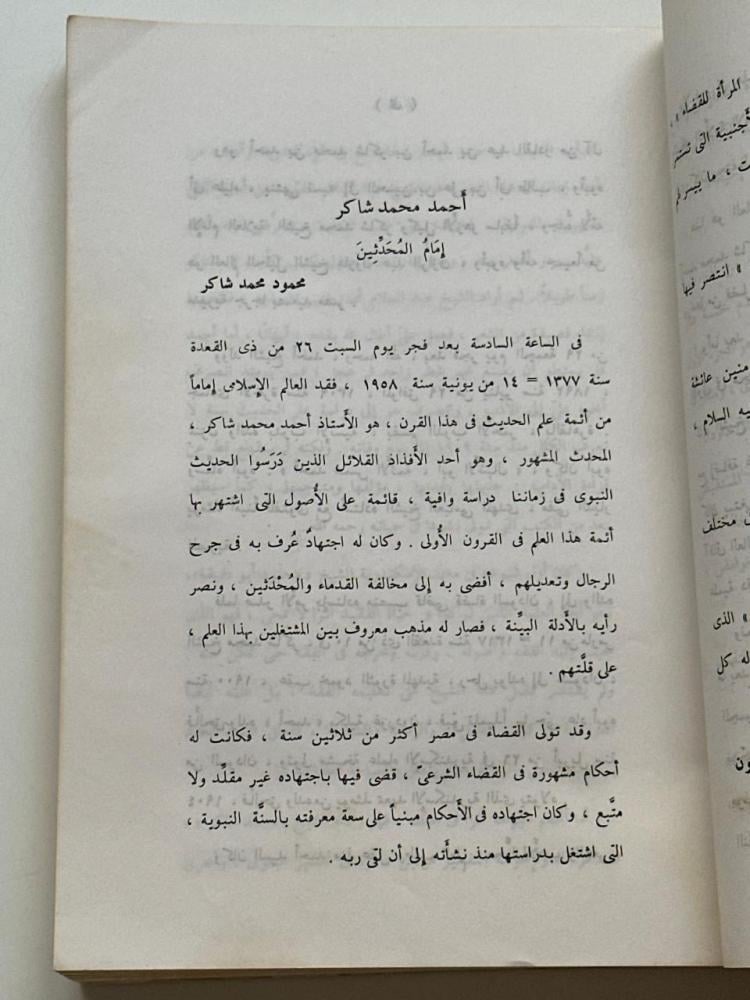 أحمد محمد شاكر
إمَامُ المُحَدِّثِينَ
محمود محمد شاكر
فى الساعة السادسة بعد فجر يوم السبت ٢٦ من ذى القعدة
سنة ١٣٧٧ = ١٤ من يونية سنة ١٩٥٨ ، فقد العالم الإسلامى إماماً
من أئمة علم الحديث فى هذا القرن ، هو الأستاذ أحمد محمد شاكر ،
المحدث المشهور ، وهو أحد الأفذاذ القلائل الذين دَرَسُوا الحديث
النبوى فى زماننا دراسة وافية ، قائمة على الأُصول التى اشتهر بها
أئمة هذا العلم فى القرون الأُولى . وكان له اجتهادٌ عُرف به فى جرح
الرجال وتعديلهم ، أفضى به إلى مخالفة القدماء والمُحْدَثين ، ونصر
رأيه بالأَدلة البيِّنة ، فصار له مذهب معروف بين المشتغلين بهذا العلم ،
على قلَّتهم .
وقد تولى القضاء فى مصر أكثر من ثلاثين سنة ، فكانت له
أحكام مشهورة فى القضاء الشرعىّ ، قضى فيها باجتهاده غير مقلِّد ولا
متَّبع ، وكان اجتهاده فى الأَحكام مبنياً على سعة معرفته بالسنَّة النبوية ،
التى اشتغل بدراستها منذ نشأَته إلى أن لقى ربه .
المرأة للقضاء » ،
أجنبية التى تستر
ت ، ما ييسر لم
» انتصر فيها
منين عائشة
يه السلام ،
مختلف
» الذى
له كل
ون